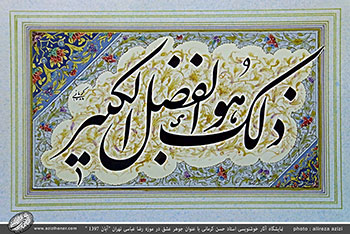 ذلك هو الفضل الكبير
www.azizihonar.com
نمایشگاه آثار خوشنویسی استاد حسن کرمانی با عنوان جوهر عشق در موزه رضا عباسی تهران "آبان 1397"
photo : alireza azizi